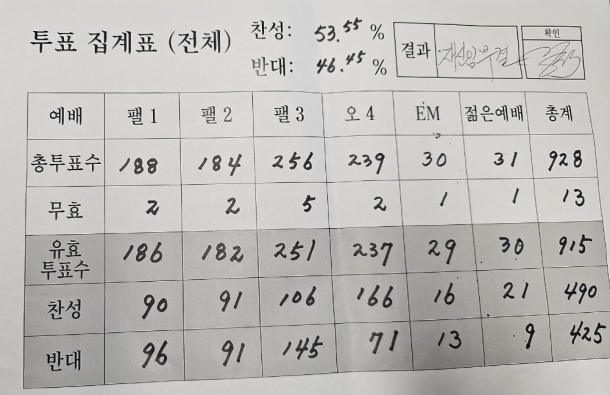 투표 집계표 (전체)
찬성: 53.55 %
반대: 46.45 %
결과
확인
예배 팰 1 팰 2 팰 3 오 4 EM 젊은예배 총계
총투표수 188 184 256 239 30 31 928
무효 2 2 5 2 1 1 13
유효 투표수 186 182 251 237 29 30 915
찬성 90 91 106 166 16 21 490
반대 96 91 145 71 13 9 425